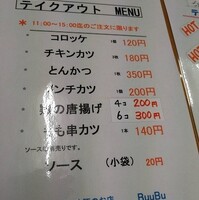 テイクアウト MENU
＊11:00～15:00迄のご注文に限ります
コロッケ 1個 120円
チキンカツ 1枚 180円
とんかつ 1枚 350円
メンチカツ 200円
の唐揚げ 4コ 200円
6コ 300円
も串カツ 1本 140円
ソースは別売りです。
ソース (小袋) 20円
のお店 BuuBu
HOT
HOT